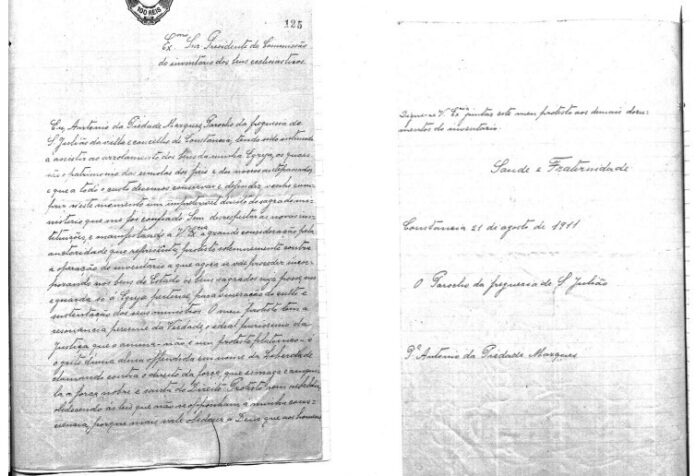 100 RÉIS
125
Exmo Snr Presidente da Commissão
do inventario dos bens ecclesiasticos.
Eu, Antonio da Piedade Marques, Parocho da freguesia de
S. Julião da villa e concelho de Constancia, tendo sido intimado
a assistir ao arrolamento dos bens da minha Egreja, os quaes
são o patrimonio das esmolas dos fieis e dos nossos antepassados,
e que a todo o custo devemos conservar e defender, venho cum-
prir n'este momento um imperterivel dever do sagrado mi-
nisterio que me foi confiado. Sem desrespeitar as novas ins-
tituições, e manifestando a V. Exma a grande consideração pela
auctoridade que representa, protesto solemnemente contra
a operação do inventario a que agora se vae proceder incor-
porando nos bens do Estado os bens sagrados cuja posse, uso
e guarda só á Egreja pertence, para veneração do culto e
sustentação dos seus ministros. O meu protesto tem a
resonancia perenne da Verdade, o ideal purissimo da
Justiça que o anima: não é um protesto platonico — é
o grito d'uma alma offendida em nome da Liberdade
clamando contra o direito da força, que esmaga e anniqui-
la a força nobre e santa do Direito. Protesto sem rebeldia,
obedecendo ás leis que não se opponham á minha cons-
ciencia, porque mais vale obedecer a Deus que aos homens.
Digne-se V. Exª juntar este meu protesto aos demais docu-
mentos do inventario.
Saude e Fraternidade
Constancia 21 de agosto de 1911
O Parocho da freguesia de S. Julião
Pe Antonio da Piedade Marques